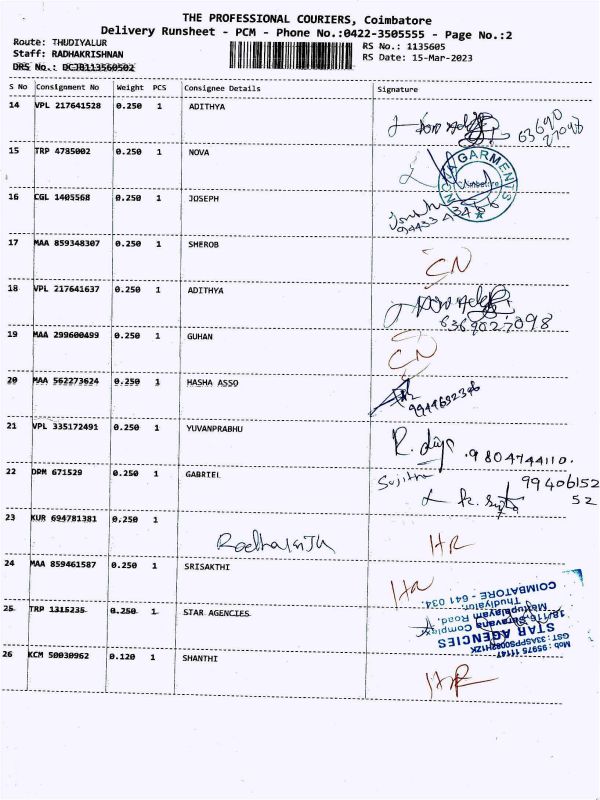 THE PROFESSIONAL COURIERS, Coimbatore
Delivery Runsheet - PCM - Phone No.:0422-3505555 - Page No.:2
Route: THUDIYALUR
RS No.: 1135605
Staff: RADHAKRISHNAN
RS Date: 15-Mar-2023
DRS No.: DCJB113560502
S No Consignment No Weight PCS Consignee Details Signature
14 VPL 217641528 0.250 1 ADITHYA
15 TRP 4785002 0.250 1 NOVA
GARMENTS
Coimbatore
16 CGL 1405568 0.250 1 JOSEPH
17 MAA 859348307 0.250 1 SHEROB
CN
18 VPL 217641637 0.250 1 ADITHYA
6369027098
19 MAA 299600499 0.250 1 GUHAN
CN
20 MAA 562273624 0.250 1 HASHA ASSO
21 VPL 335172491 0.250 1 YUVANPRABHU
9804744110.
22 DPM 671529 0.250 1 GABRIEL
Sujitha
99406152
52
23 KUR 694781381 0.250 1
HR
24 MAA 859461587 0.250 1 SRISAKTHI
HR
25 TRP 1315235 0.250 1 STAR AGENCIES
STAR AGENCIES
Mettupalayam Road,
Thudiyalur,
COIMBATORE - 641 034.
26 KCM 50030962 0.120 1 SHANTHI
HR